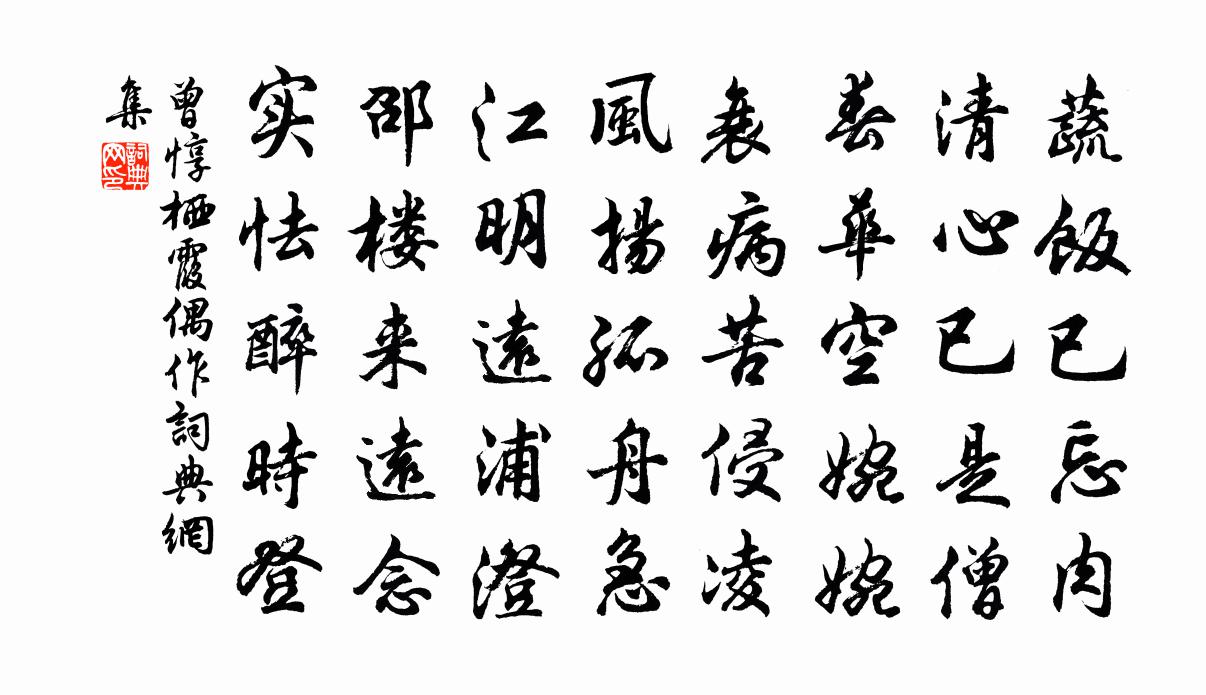 蔬飯已忘肉
清心已是僧
春華空婉婉
衰病苦侵凌
風揚孤舟急
江明遠浦澄
邵楼来遠念
实怯醉時登
曾惇栖霞偶作詞典網
集
詞典网印